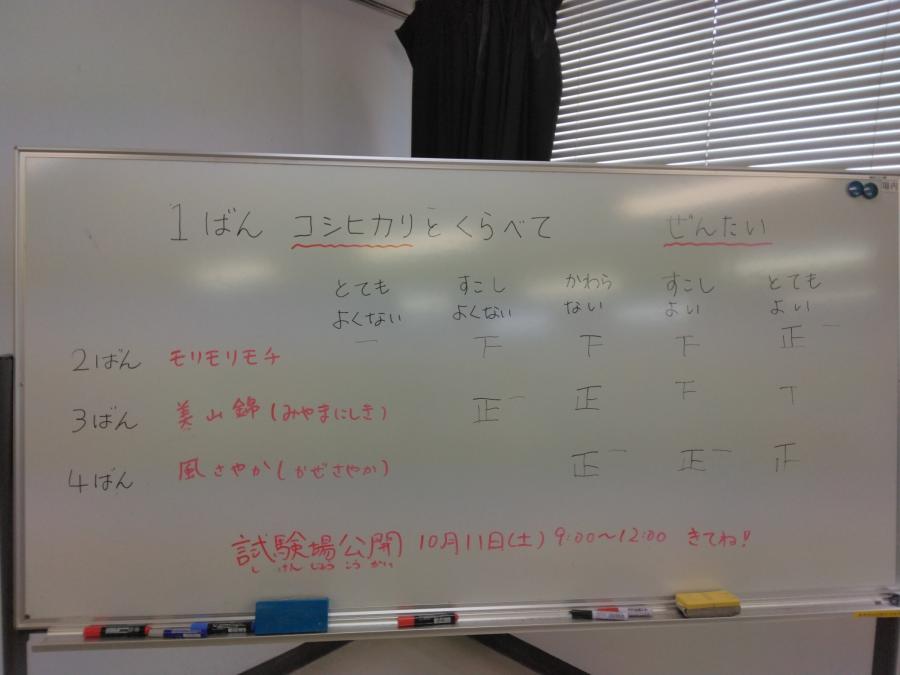 1ばん コシヒカリとくらべて ぜんたい
とても よくない すこし よくない かわら ない すこし よい とても よい
2ばん モリモリモチ 一 下 下 下 正一
3ばん 美山錦(みやまにしき) 正一 正 下 丅
4ばん 風さやか(かぜさやか) 正一 正一
試験場公開 10月11日(土) 9:00～12:00 きてね!!
しけんじょうこうかい
場内